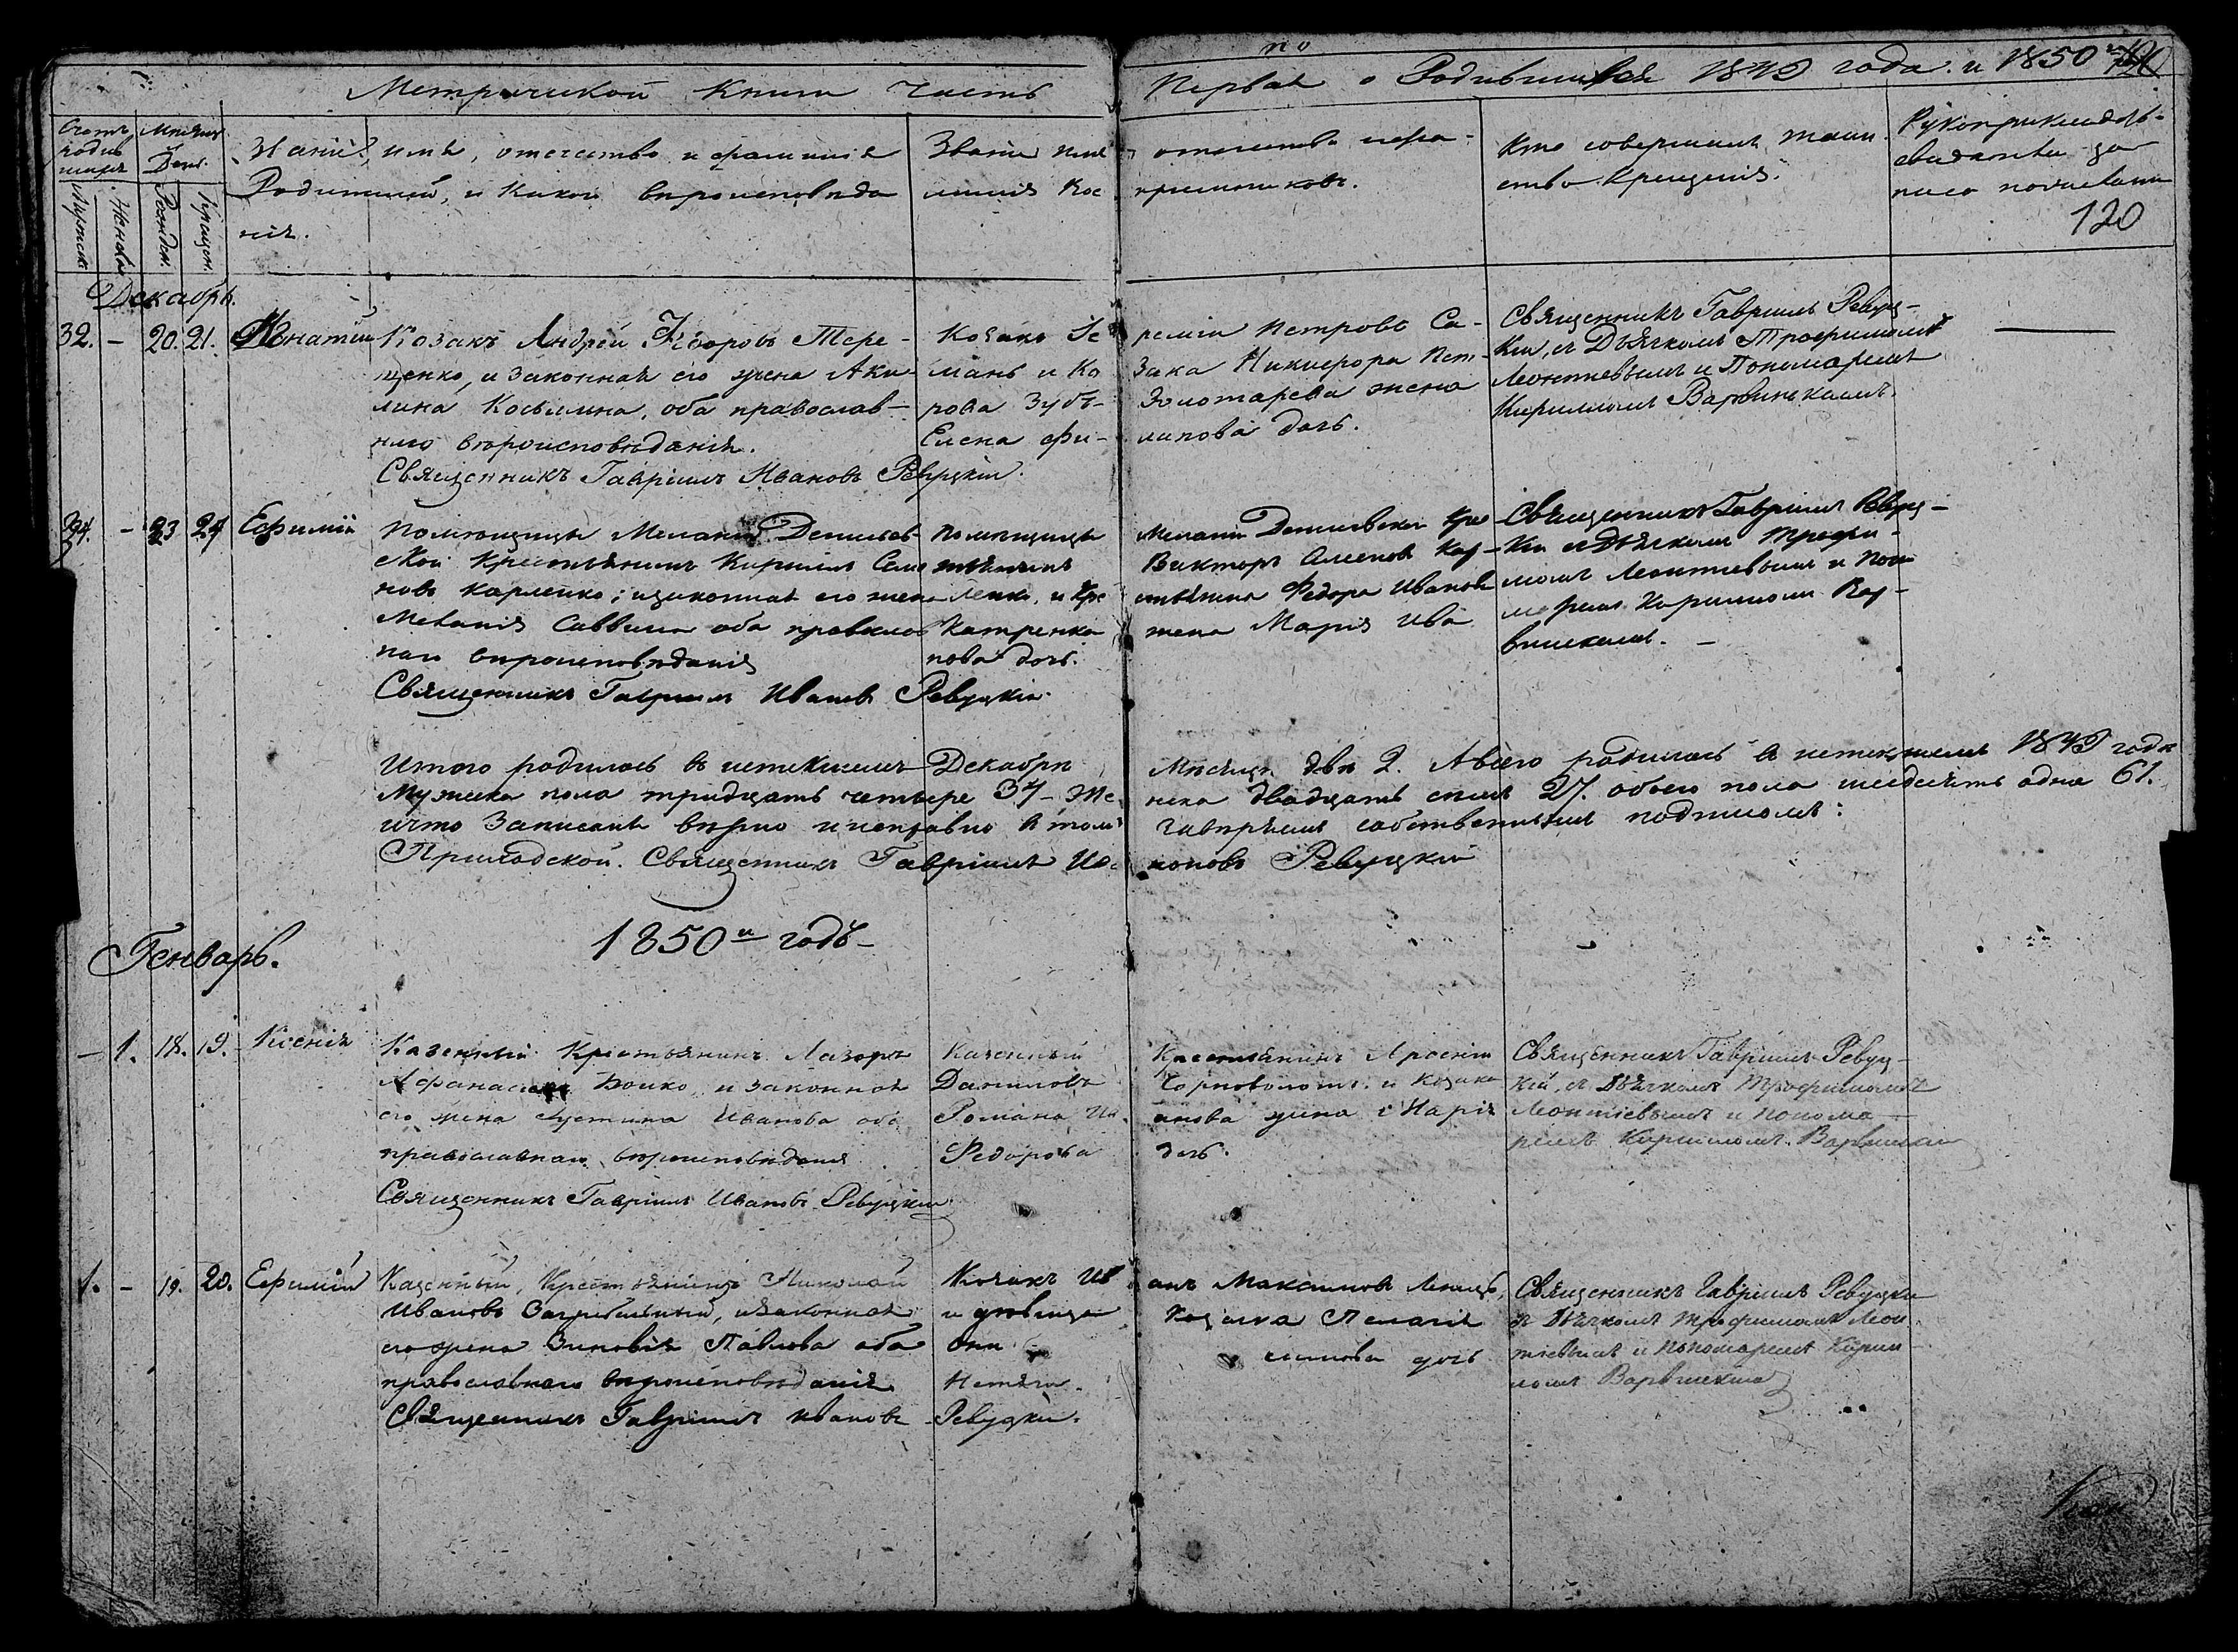 по
Метрической Книги Часть Первая о Родившихся 1849 года. и 1850
Счетъ родив шихъ
Мѣсяцъ и День.
Мужеска
Женска
Рожден.
Крещен.
Званіе, имя, отечество и фамилія
Родителей, и какого вѣроисповѣда
нія.
Званіе имя отечество и фа-
милія Вос пріемниковъ.
Кто совершалъ таин
ство Крещенія.
Рукоприкладств
свидетел за
писи
120
Декабрь.
32. – 20. 21. Игнатій
Козакъ Андрей Федоровъ Тере-
щенко, и законная его жена Аки-
лина Косьмина, оба православ-
наго вѣроисповѣданія.
Священникъ Гавріилъ Ивановъ Ревуцкій.
Козакъ Іе ремія Петровъ Са-
мань и Ко зака Никифора Пет-
рова Зубъ- Золотарева жена
Елена Фи- липова дочь.
Священникъ Гавріилъ Ревуц-
кій, съ Дьячкомъ Трофимомъ
Леонтіевымъ и Пономаремъ
Кирилломъ Варвинскимъ.
34. – 23 24 Ефимій
Помѣщицы Меланіи
ской Крестьянинъ Кириллъ Семе
новъ Карпенко; и законная его жена
Меланія Саввина оба православ
наго вѣроисповѣданія
Священникъ Гавріилъ Ивановъ Ревуцкій.
Помѣщицы Меланіи Крес
тьянинъ Викторъ Семеновъ Кар-
пенко, и Кре стьянина Федора Иванова
Катренка жена Марія Ива
нова дочь.
Священникъ Гавріилъ Ревуц-
кій съ Дьячкомъ Трофи-
момъ Леонтіевымъ и Поно
маремъ Кирилломъ Вар-
винскимъ. –
Итого родилось въ истекшемъ Декабрѣ Мѣсяцѣ два 2. А всего родилось въ истекшемъ 1849 годѣ
Мужеска пола тридцать четыре 34 – Же нска двадцать семь 27. обоего пола шесдесятъ одна 61.
что записано вѣрно и исправно в томъ завѣряемъ собственнымъ подписомъ:
Приходской. Священникъ Гавріилъ Ива новъ Ревуцкій
1850й годъ –
Генварь.
– 1. 18. 19. Ксенія
Казенный Крестьянинъ Лазарь
Афанасіевъ Бойко и законная
его жена Іустина Иванова оба
православнаго вѣроисповѣданія
Священникъ Гавріилъ Ивановъ Ревуцкій
Казенный Крестьянинъ Арсеній
Даниловъ Чорноволотъ. и козака
Романа Ив анова жена Марія
Федорова дочь.
Священникъ Гавріилъ Ревуц-
кій, съ Дьячкомъ Трофимомъ
Леонтіевымъ и понома-
ремъ Кирилломъ Варвинским
1. – 19. 20. Ефимій
Казенный, Крестьянинъ Николай
Ивановъ Загребельный, и законная
его жена Зиновія Павлова оба
православнаго вѣроисповѣданія.
Священникъ Гавріилъ Ивановъ Ревуцкій.
Козакъ Ив анъ Максимовъ
и дѣвица козачка Пелагія
дочь
Священникъ Гавріилъ Ревуцкій
съ Дьячкомъ Трофимомъ Леон
тіевымъ и пономаремъ Кирил
ломъ Варвинскимъ